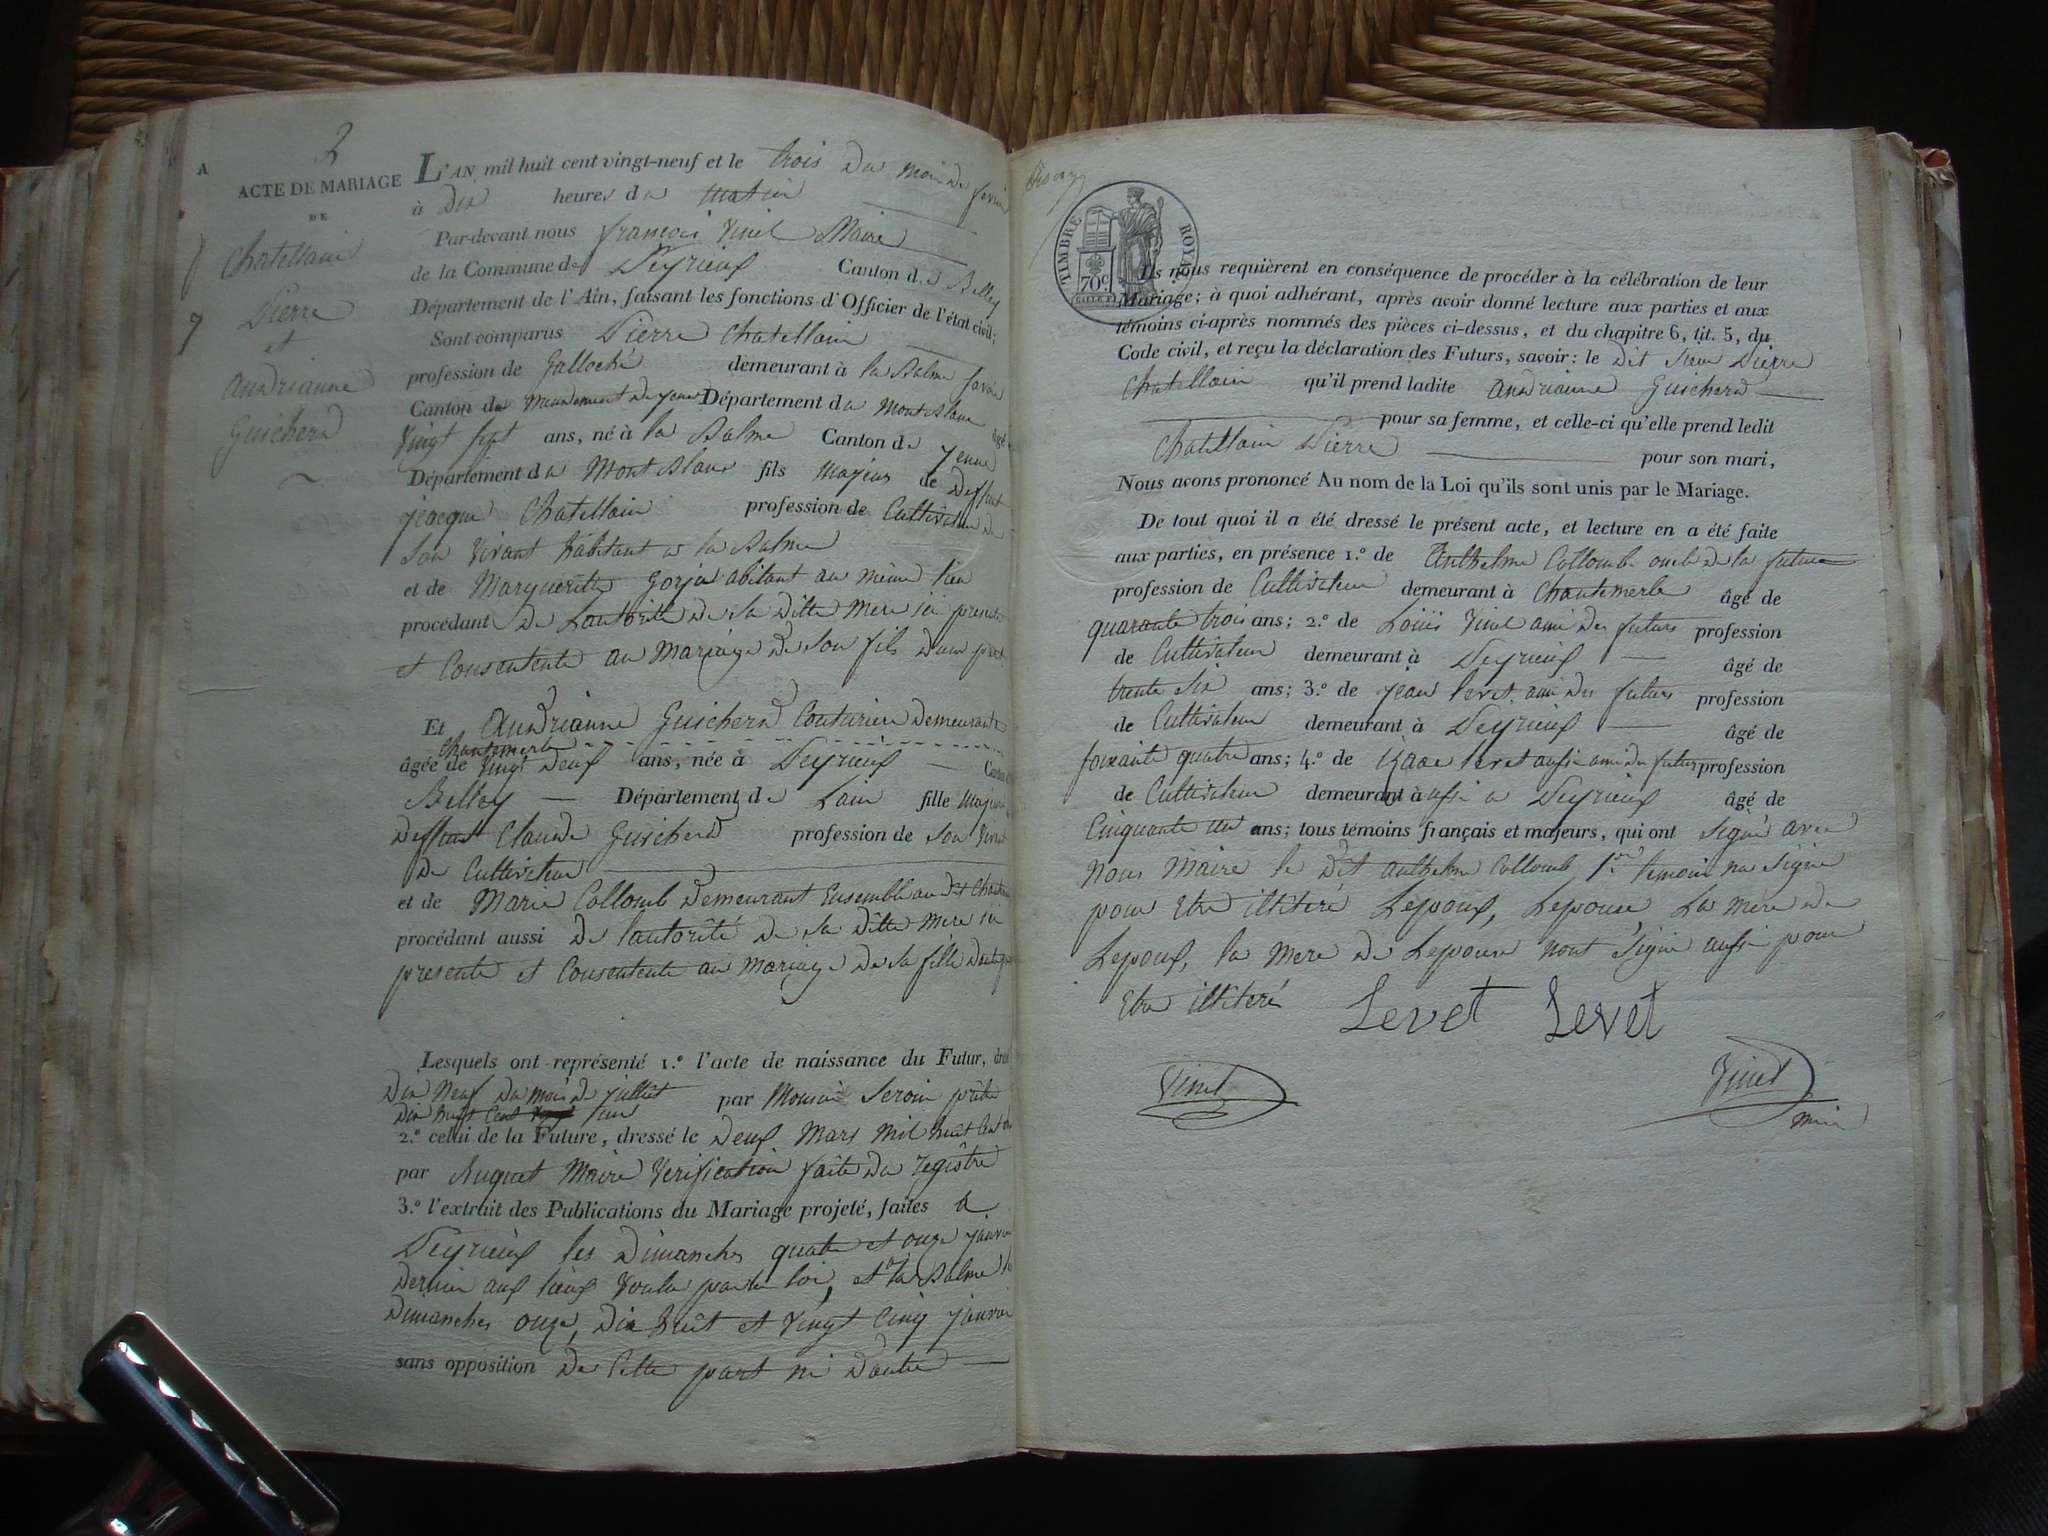 2
A
ACTE DE MARIAGE
DE
Chatellain
Pierre
et
Andrianne
Guicherd
L'AN mil huit cent vingt-neuf et le trois du mois de fevrier
à dix heures du matin
Par-devant nous francois Vinet Maire
de la Commune de Peyrieux Canton de Belley
Département de l'Ain, faisant les fonctions d'Officier de l'état civil;
Sont comparus Pierre Chatellain
profession de Galloché demeurant à la Balme Savoie
Canton de Mendement de yenne Département du Montblanc âgé
Vingt sept ans, né à la Balme Canton de yenne
Département du Mont Blanc fils Majeur de Deffunt
jeacque Chatellain profession de Cultivateur de
son vivant habitant a la Balme
et de Margueritte Gorju abitant au même lieu
procédant de Lautorité de sa ditte mere ici presente
et Consentente au mariage de son fils d'une part
Et Andrianne Guicherd Couturiere demeurante
Chantemerle
âgée de Vingt deux ans, née à Peyrieux Canton
Belley Département de Lain fille Majeure
deffunt Claude Guicherd profession de son Vivant
de Cultivateur
et de Marie Collomb demeurant Ensemble au dit
procédant aussi de l'autorité de sa ditte mere ici
presente et Consentente au mariage de sa fille
Lesquels ont représenté 1.º l'acte de naissance du Futur,
dix Neuf du mois de juillet par Monsieur Seroin prêtre
dix huit Cent un
2.º celui de la Future, dressé le deux Mars mil huit Cent
par Auguet Maire Verification faite du registre
3.º l'extrait des Publications du Mariage projeté, faites a
Peyrieux les dimanches quatre et onze janvier
dernier aux lieux Voulu par la loi, et a la Balme
dimanches onze, dix huit et vingt Cinq janvier
sans opposition de Cette part ni d'autre
TIMBRE ROYAL
70c
Ils nous requièrent en conséquence de procéder à la célébration de leur
Mariage; à quoi adhérant, après avoir donné lecture aux parties et aux
témoins ci-après nommés des pièces ci-dessus, et du chapitre 6, tit. 5, du
Code civil, et reçu la déclaration des Futurs, savoir: le dit sieur Pierre
Chatellain qu'il prend ladite Andrianne Guicherd
pour sa femme, et celle-ci qu'elle prend ledit
Chatellain Pierre pour son mari,
Nous avons prononcé Au nom de la Loi qu'ils sont unis par le Mariage.
De tout quoi il a été dressé le présent acte, et lecture en a été faite
aux parties, en présence 1.º de Anthelme Collomb oncle de la future
profession de Cultivateur demeurant à Chantemerle âgé de
quarante trois ans; 2.º de Louis Vinet ami des futurs profession
de Cultivateur demeurant à Peyrieux âgé de
trente six ans; 3.º de jean levet ami des futurs profession
de Cultivateur demeurant à Peyrieux âgé de
soixante quatre ans; 4.º de izaac levet aussi ami du futur profession
de Cultivateur demeurant à aussi a Peyrieux âgé de
Cinquante un ans; tous témoins français et majeurs, qui ont signé avec
nous Maire le dit anthelme Collomb 1er temoin na signé
pour Etre illiteré Lepoux, Lepouse, La mere de
Lepoux, la mere de Lepouse nont signé aussi pour
Etre illiteré Levet Levet
Vinet Vinet